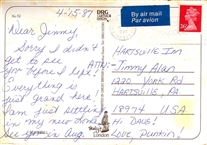 4-15-87
By air mail
Par avion
Dear Jimmy,
Sorry I didn't
get to see
you before I left!
Everything is
just grand here!
I am just settling
in my new home.
See you in Aug.
Hartsville Inn
ATTN: Jimmy Alan
1220 York Rd
Hartsville, PA
18974 USA
Hi Dave!
Love, Dunkin!
London